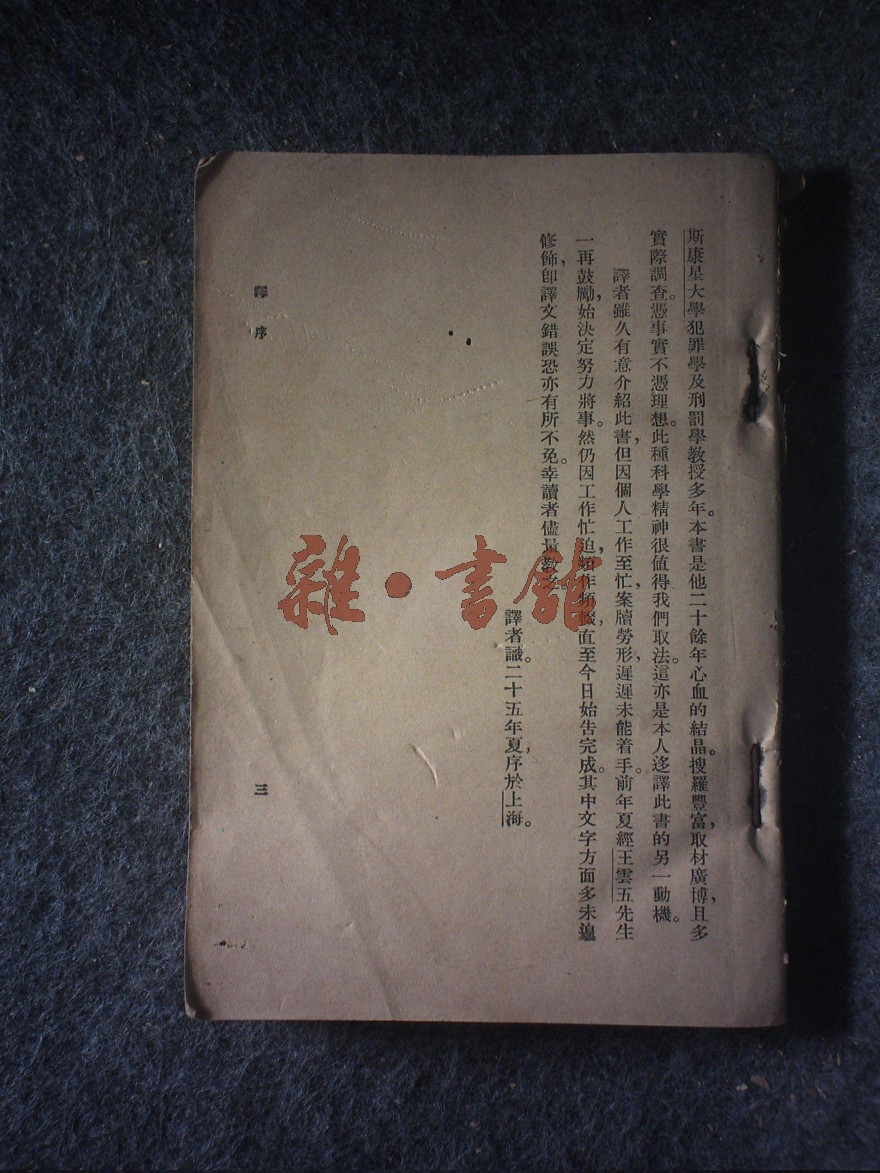 斯康星大學犯罪學及刑罰學教授多年。本書是他二十餘年心血的結晶。搜羅豐富，取材廣博，且多
實際調查。憑事實不憑理想。此種科學精神很值得我們取法。這亦是本人迻譯此書的另一動機。
譯者雖久有意介紹此書，但因個人工作至忙，案牘勞形，遲遲未能着手。前年夏經王雲五先生
一再鼓勵，始決定努力將事。然仍因工作忙迫，頻作頻輟，直至今日始告完成。其中文字方面多未遑
修飾，卽譯文錯誤恐亦有所不免。幸讀者儘量教之。
譯者識。二十五年夏，序於上海。
譯序
三
雜·書館